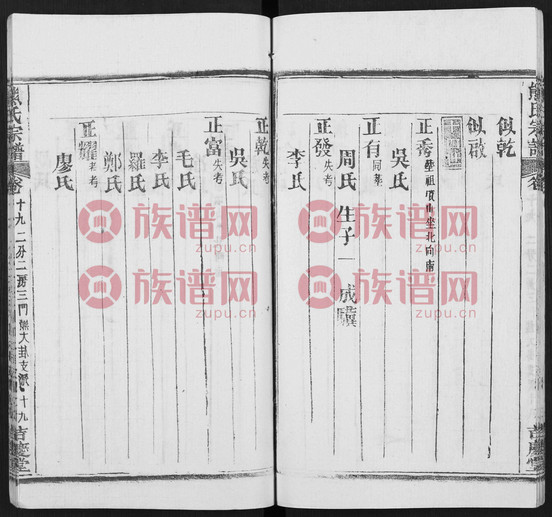 似乾
似啟
正秀 塟祖項山坐北向南
吳氏
正有 同塟
周氏 生子一 成驥
正發 失考
李氏
正乾 失考
吳氏
正富 失考
毛氏
李氏
羅氏
鄭氏
正耀 失考
廖氏
熊氏宗譜 卷 十九 二分二房三門 大卦支派 十九 吉慶堂
熊氏宗譜 卷
吉慶堂
族谱网
www.zupu.cn
族谱网
www.zupu.cn
族谱网
www.zupu.cn
族谱网
www.zupu.cn